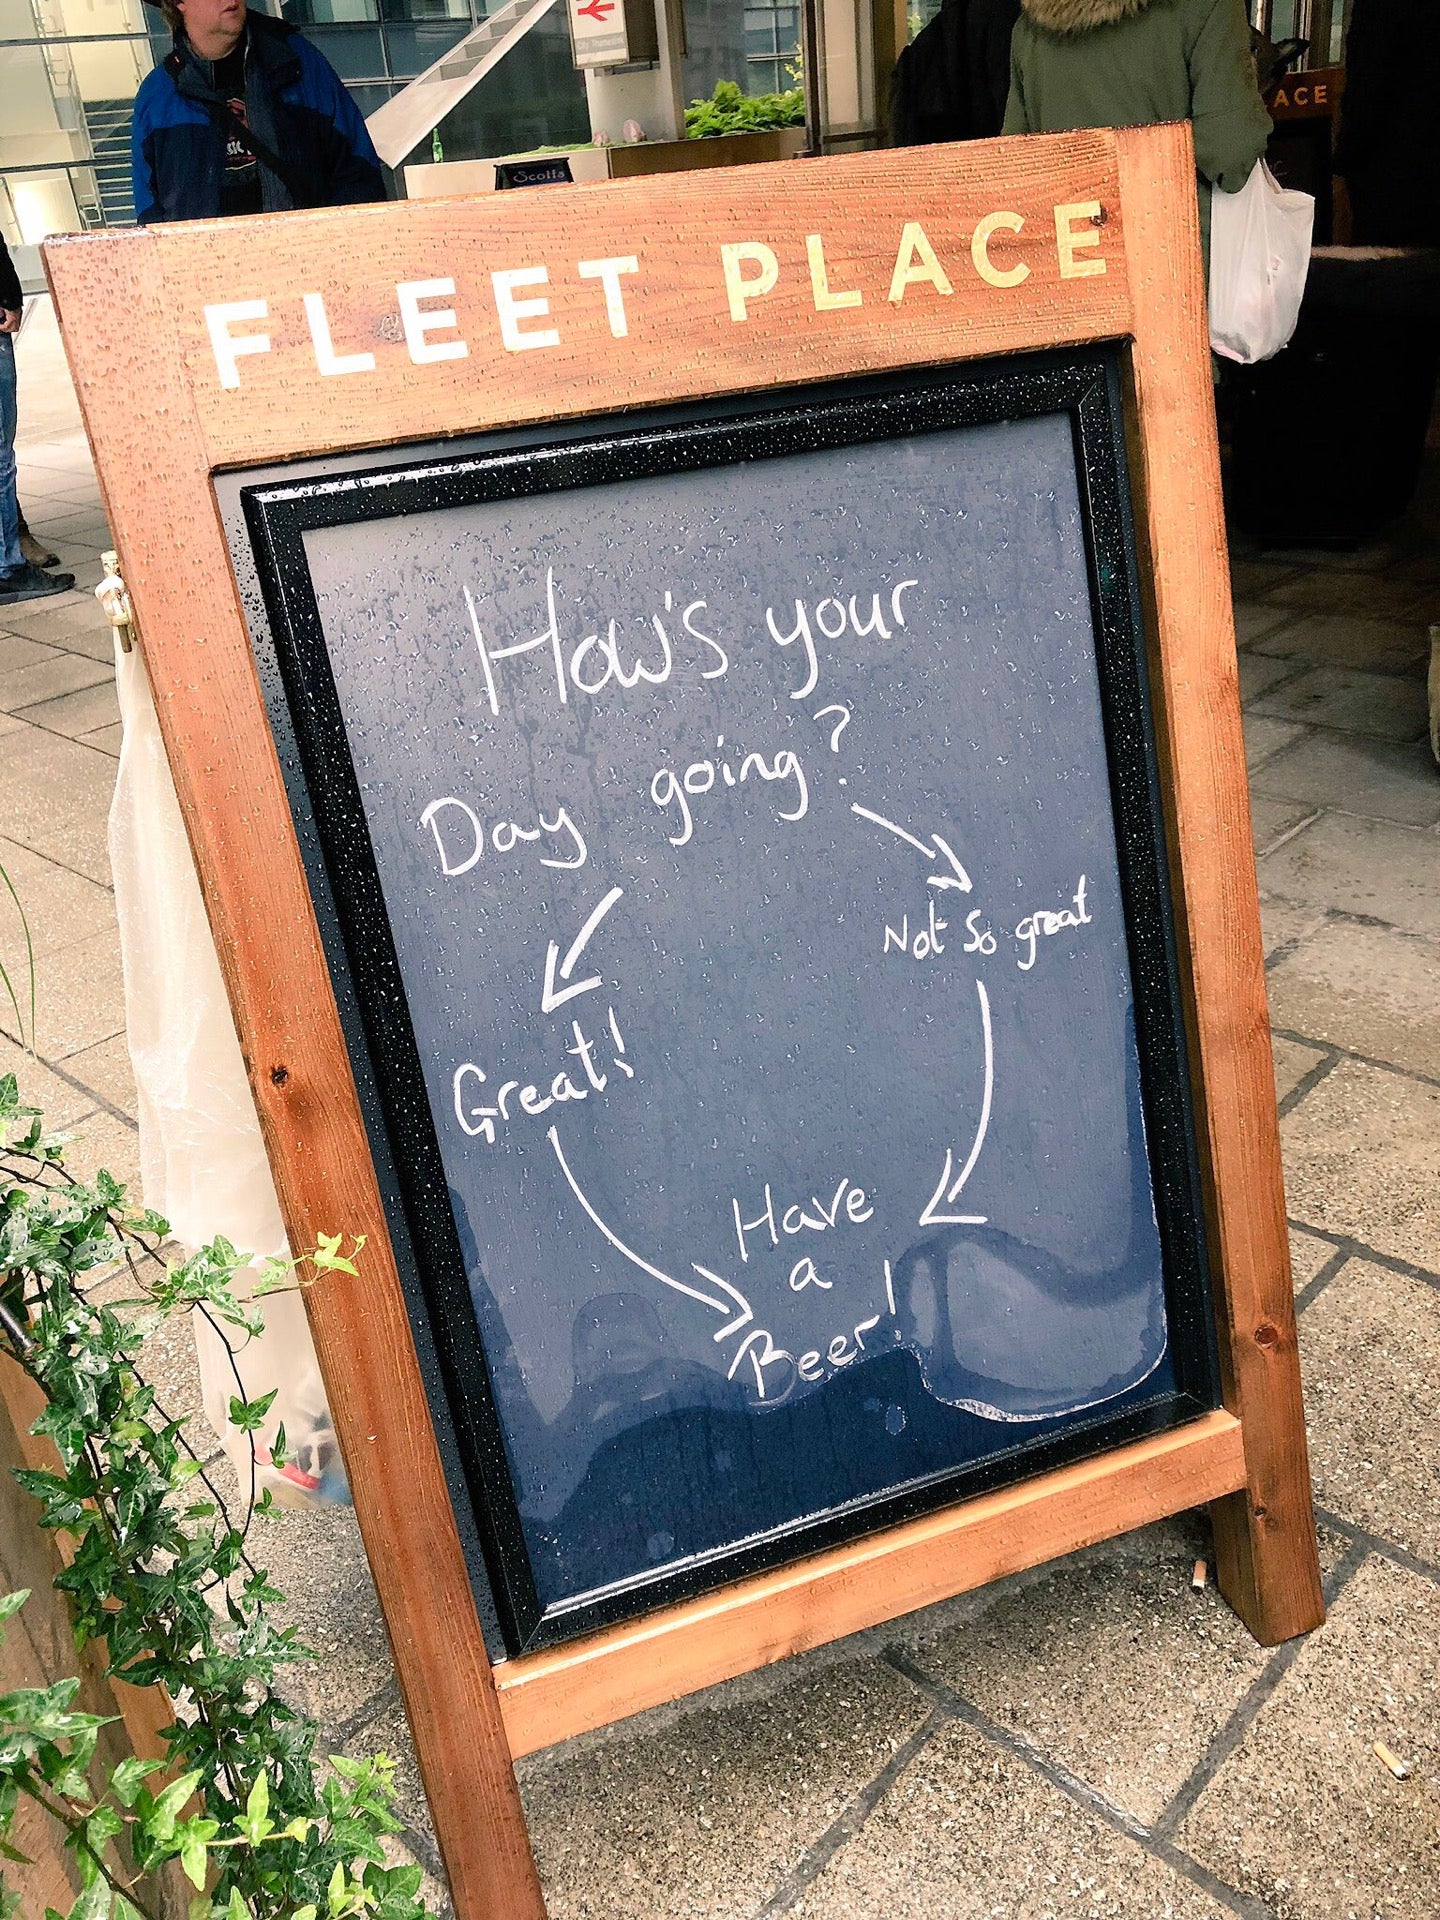 City Thameslink
Scotts
ACE
FLEET PLACE
How's your
Day going?
Not so great
Great!
Have
a
Beer!